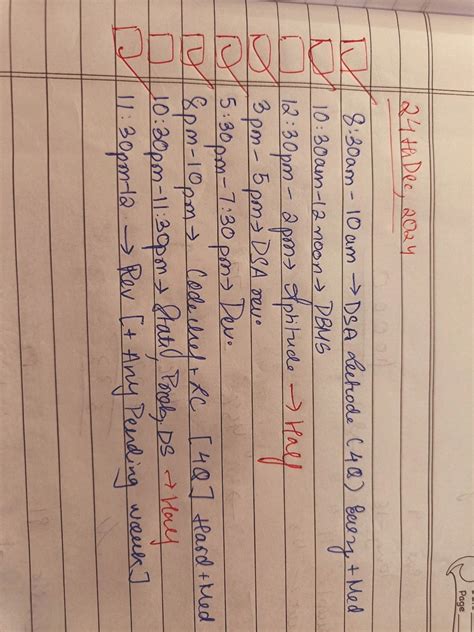 24th Dec, 2024
8:30am - 10am → DSA Leetcode (4Q) Easy + Med
10:30am - 12 noon → DBMS
12:30pm - 2pm → Aptitude → Half
3pm - 5pm → DSA rev.
5:30pm - 7:30pm → Dev.
8pm - 10pm → + LC [4Q] Hard + Med
10:30pm - 11:30pm → Stat, Prob, DS → Half
11:30pm - 12 → Rev [+ Any Pending work]
Page